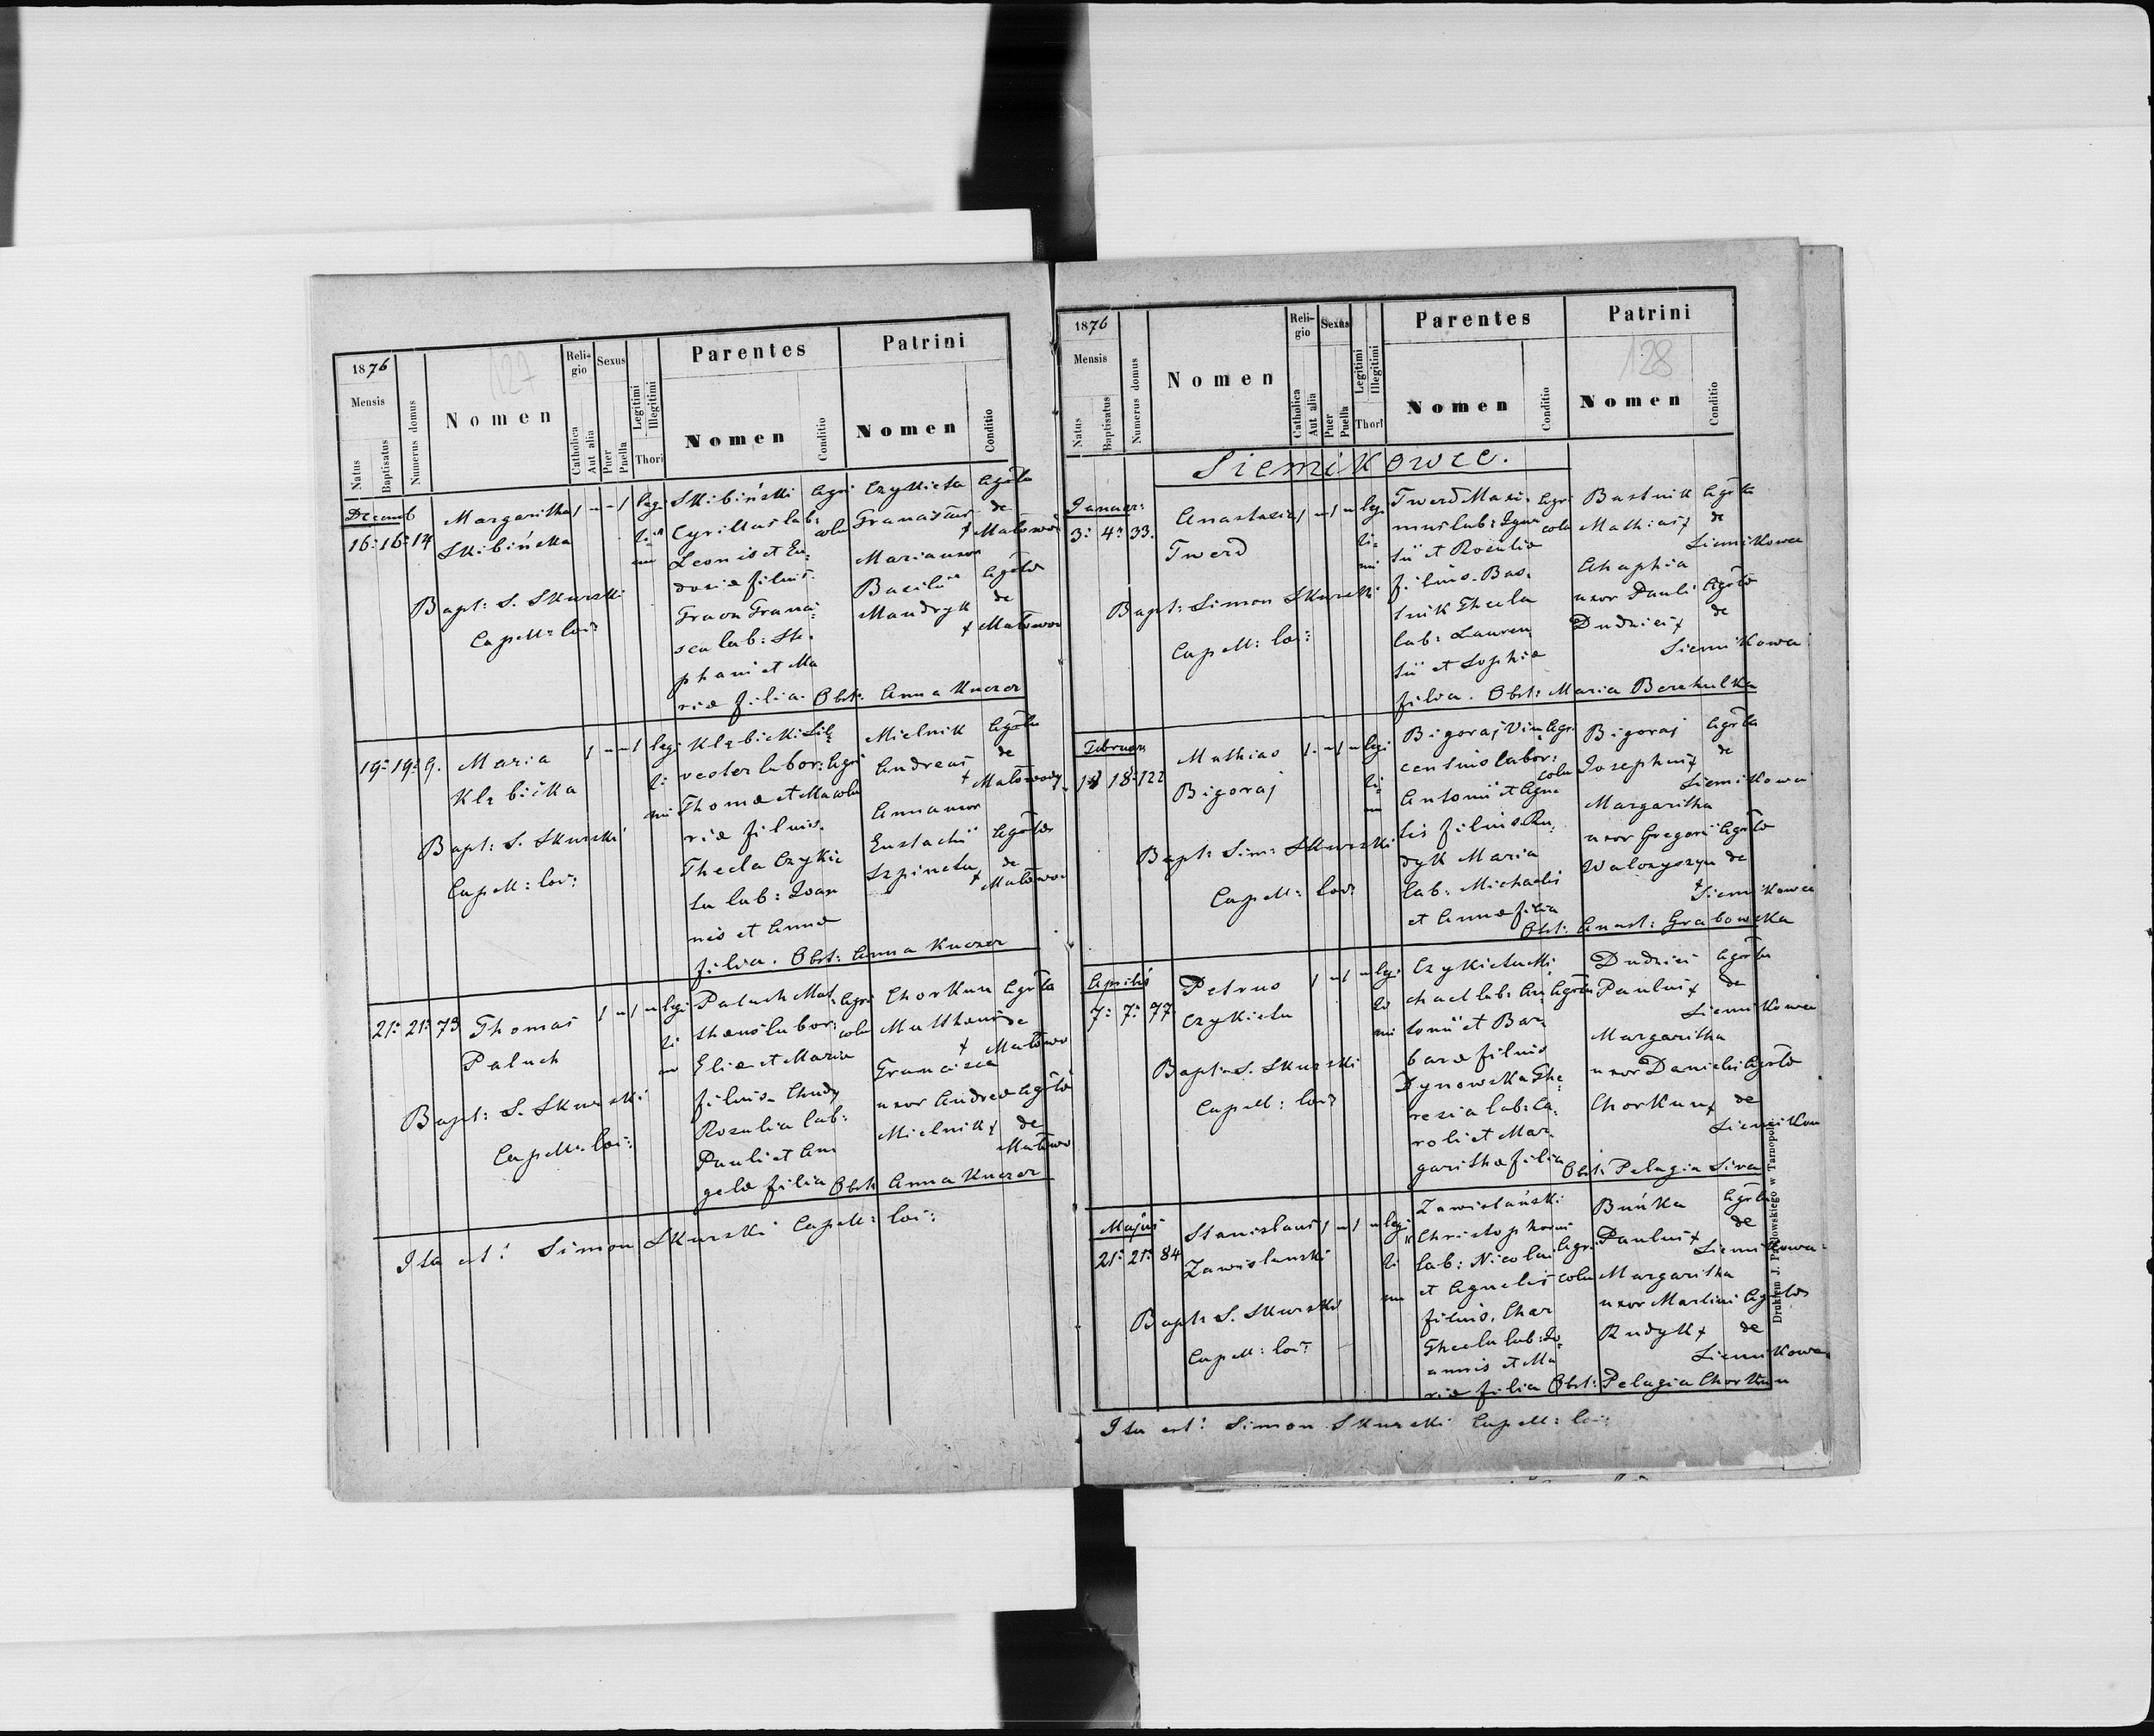 1876
Mensis
Natus
Baptisatus
Numerus domus
127
Nomen
Religio
Catholica
Aut alia
Sexus
Puer
Puella
Legitimi
Illegitimi
Thori
Parentes
Nomen
Conditio
Patrini
Nomen
Conditio
Decemb
16: 16: 14
Margaritha
Skibińska
Bapt: S. Skurski
Capell: loci
legi
ti
mi
Skibiński
Cyrillus lab:
Leonis et Eu-
doxiæ filius.
Francis-
sca lab: Ste-
phani et Ma
riæ filia. Obst: Anna Kuczer
Agri
cola
Czykieta
Franciscus
Maria uxor
Basilii
Mandryk
Agrla
de
+ Małowod
Agrla
de
+ Małowod
19: 19: 9.
Maria
Klębicka
Bapt: S. Skurski
Capell: loci:
legi
ti
mi
Klębicki Sil-
vester labor:
Thomæ et Ma
riæ filius.
Thecla Czykie
ta lab: Joan
nis et Annæ
filia. Obst: Anna Kuczer
Agri
cola
Mielnik
Andreas
Anna uxor
Eustachii
Szpineta
Agrla
de
+ Małowody
Agrla
de
+ Małowod
21: 21: 73
Thomas
Paluch
Bapt: S. Skurski
Capell: loci:
legi
ti
mi
Paluch Mat-
thæus labor:
Eliæ et Mariæ
filius. Chudy
Rozalia lab:
Pauli et An
gelæ filia Obst: Anna Kuczer
Agri
cola
Chorkun
Matthæus
Francisca
uxor Andreæ
Mielnik +
Agrla
de
+ Małowo
Agrla
de
Małowo
Ita est: Simon Skurski Capell: loci:
1876
Mensis
Natus
Baptisatus
Numerus domus
Nomen
Religio
Catholica
Aut alia
Sexus
Puer
Puella
Legitimi
Illegitimi
Thori
Parentes
Nomen
Conditio
Patrini
128
Nomen
Conditio
Siemikowce.
Januar:
3: 4: 33.
Anastasia
Twerd
Bapt: Simon Skurski
Capell: loci:
legi
ti-
mi
Twerd Maxi-
mus lab: Igna
tii et Rozaliæ
filius. Bas-
tnik Thecla
lab: Lauren
tii et Sophiæ
filia. Obst: Maria Berehulka
Agri
cola
Bastnik
Mathias +
Ahaphia
uxor Pauli
Dudzici +
Agrla
de
Siemikowce
Agrla
de
Siemikowce
Februar
18 18: 122
Mathias
Bigoraj
Bapt: Sim: Skurski
Capell: loci
legi
ti-
mi
Bigoraj Vin
centius labor:
Antonii et Agne
tis filius. Ru-
dyk Maria
lab: Michaelis
et Annæ filia
Obst: Anast: Grabowska
Agri
cola
Bigoraj
Josephus +
Margaritha
uxor Gregorii
Wołoszyn
Agrla
de
Siemikowce
Agrla
de
+ Siemikowce
Aprilis
7: 7: 77
Petrus
Czykieta
Bapt: S. Skurski
Capell: loci
legi
ti
mi
Czykieta Mi-
chael lab: An
tonii et Bar-
baræ filius
Dynowska The-
resia lab: Ca-
roli et Mar-
garithæ filia Obst: Pelagia Siva
Agrla
Dudzici
Paulus +
Margaritha
uxor Danielis
Chorkun +
Agrla
de
Siemikowce
Agrla
de
Siemikow
Majus
21: 21: 84
Stanislaus
Zawislanski
Bapt: S. Skurski
Capell: loci
legi
ti
mi
Zawislański
Christophorus
lab: Nicolai
et Agnetis
filius. Char
Thecla lab: Jo-
annis et Ma
riæ filia Obst: Pelagia Chorkun
Agri
cola
Buńka
Paulus +
Margaritha
uxor Martini
Rudyk +
Agrla
de
Siemikowce
Agrla
de
Siemikowce
Ita est: Simon Skurski Capell: loci:
Drukiem J. Pawłowskiego w Tarnopolu